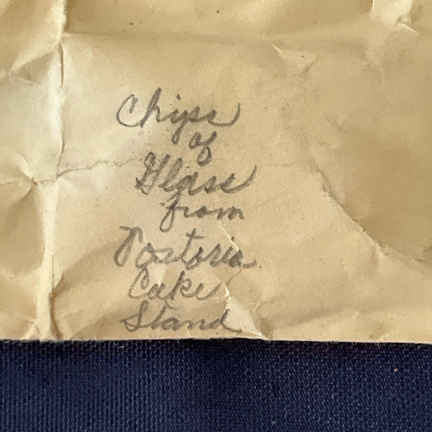 Chips
of
Glass
from
Fostoria
Cake
Stand